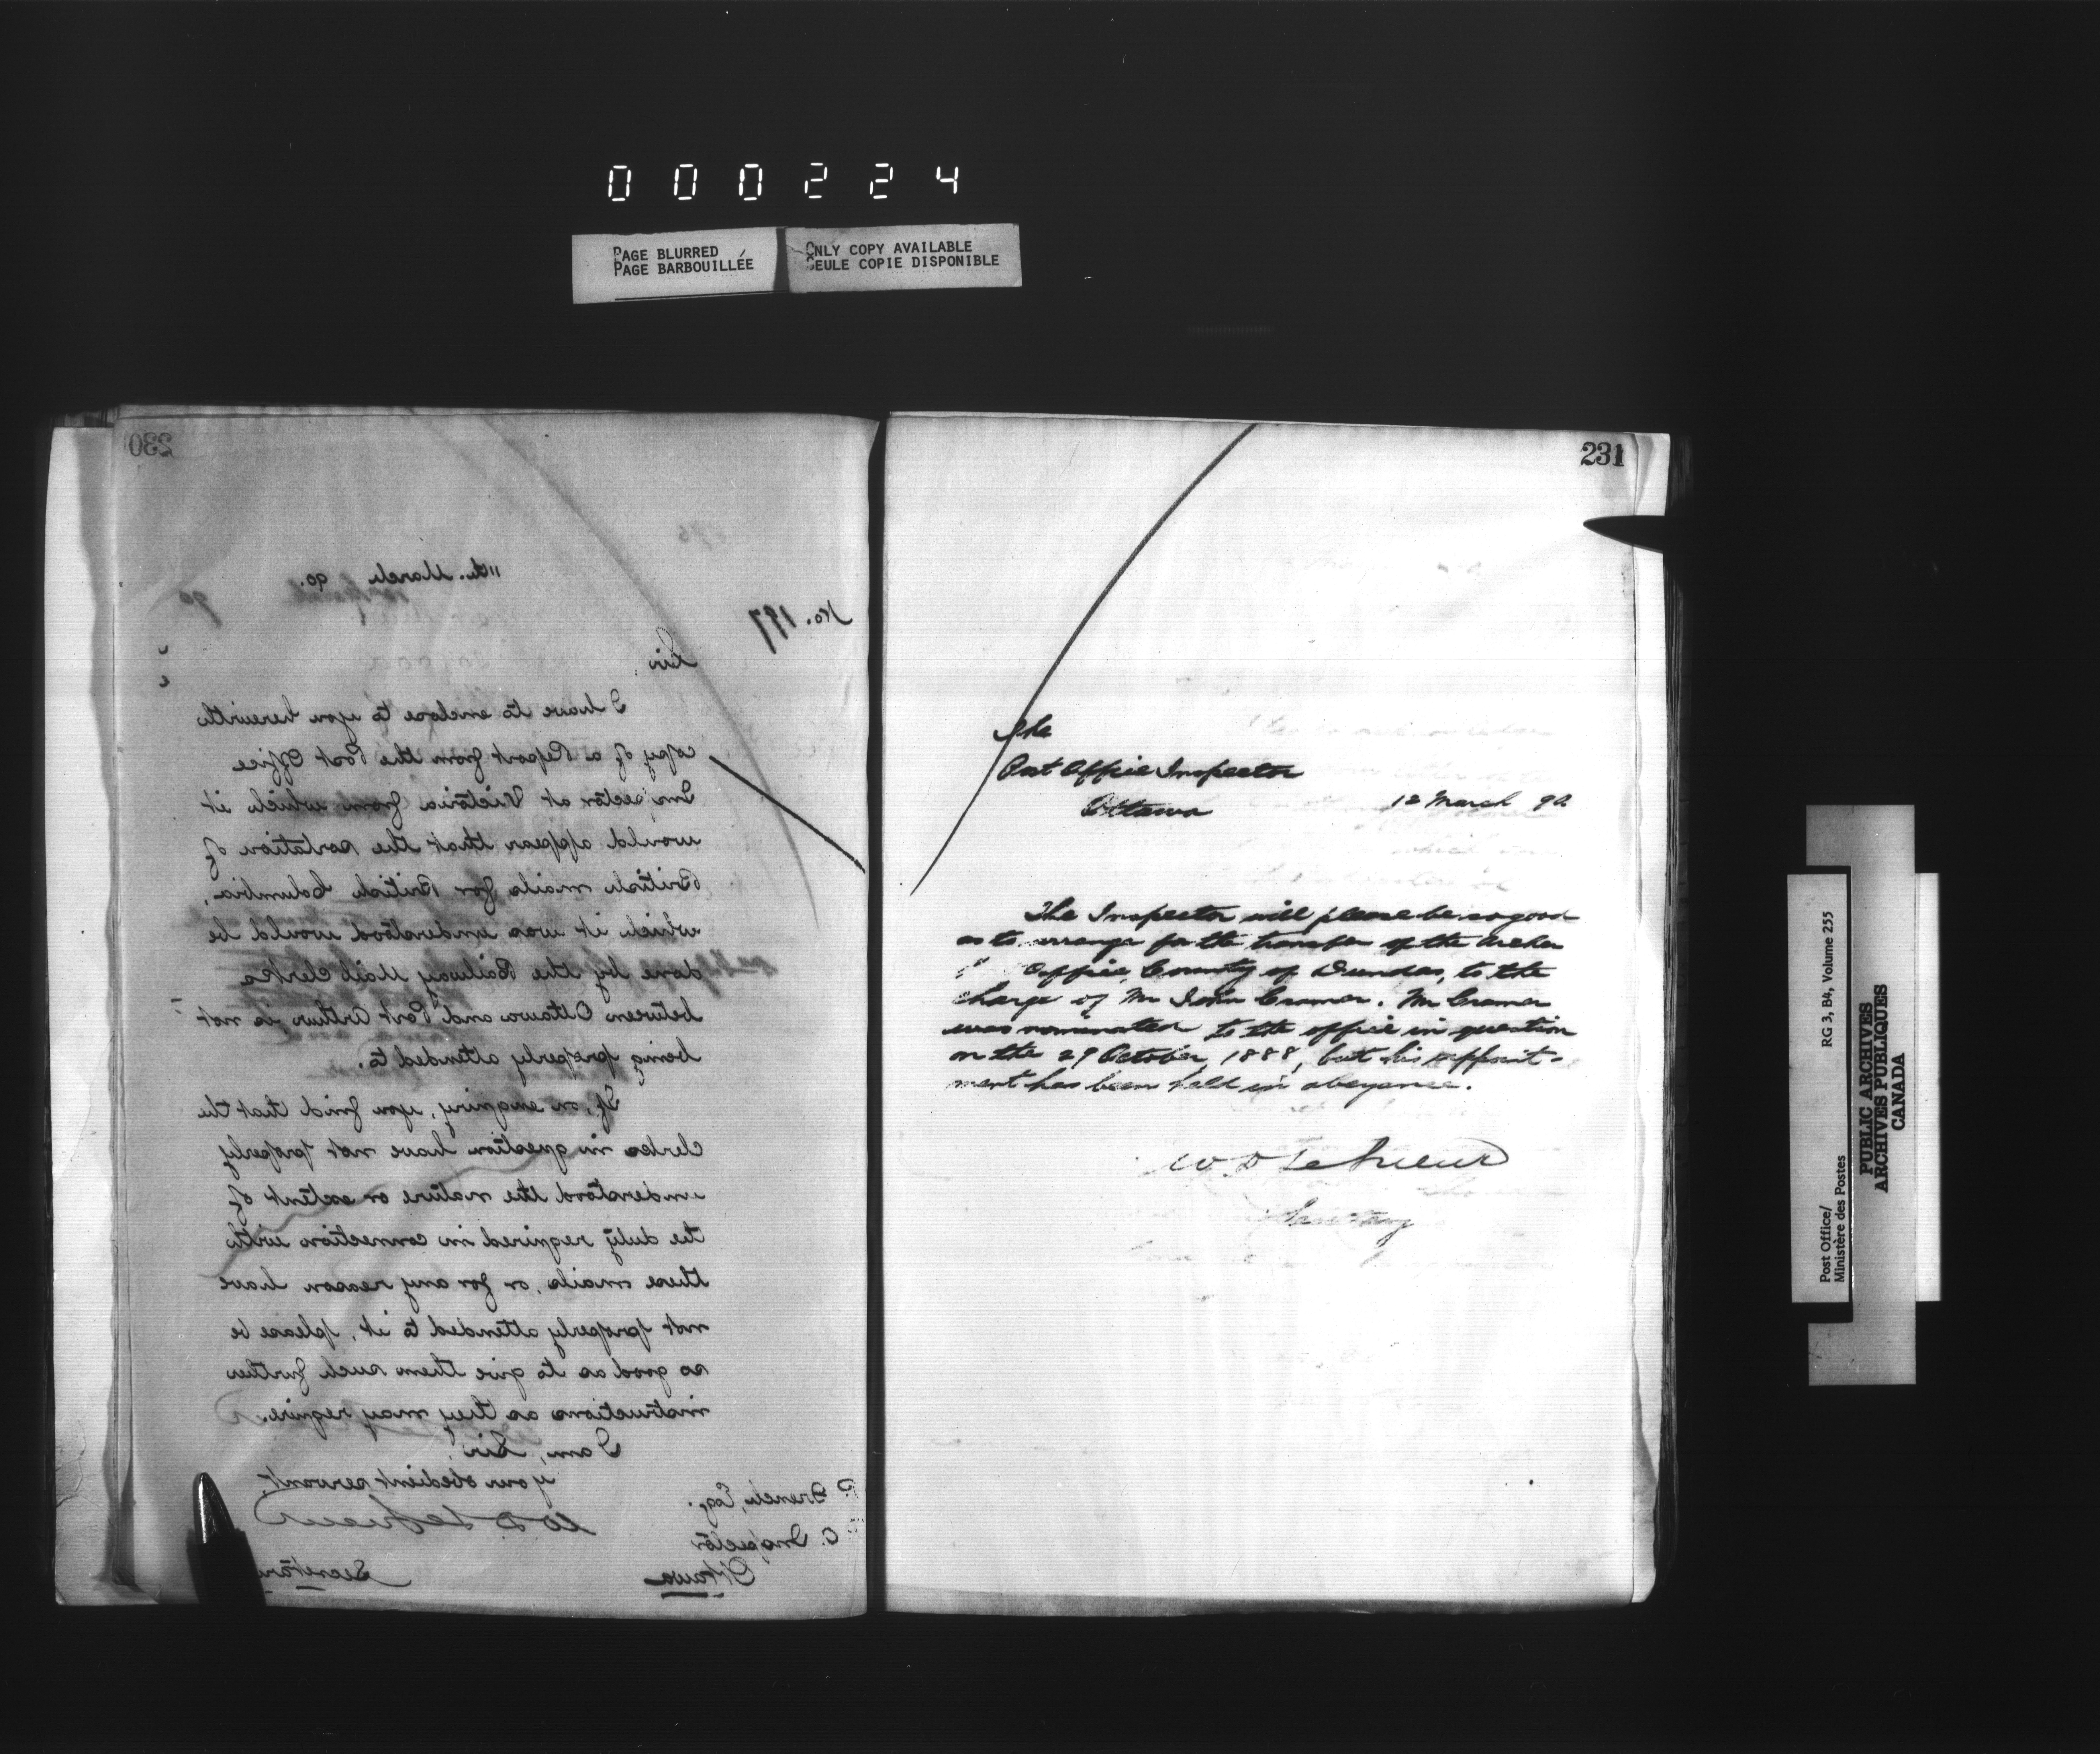 000224
PAGE BLURRED
PAGE BARBOUILLÉE
ONLY COPY AVAILABLE
SEULE COPIE DISPONIBLE
230
11th. March 90.
No. 197
Sir
I have to enclose to you herewith
copy of a Report from the Post Office
Inspector at Victoria from which it
would appear that the sortation of
British mails for British Columbia,
which it was understood would be
done by the Railway Mail Clerks
between Ottawa and Port Arthur is not
being properly attended to.
If, on enquiry, you find that the
clerks in question have not properly
understood the nature or extent of
the duty required in connection with
these mails, or for any reason have
not properly attended to it, please be
so good as to give them such further
instructions as they may require.
I am, Sir,
Your obedient servant,
W D LeSueur
Secretary
French, Esq.
Inspector
Ottawa
231
The
Post Office Inspector
Ottawa
12 March 90
The Inspector will please be so good
as to arrange for the transfer of the Archer
Office, County of Dundas, to the
charge of Mr John Cramer. Mr Cramer
was nominated to the office in question
on the 29 October, 1888, but his appoint-
ment has been held in abeyance.
W D LeSueur
Secretary
Post Office/
Ministère des Postes
RG 3, B4, Volume 255
PUBLIC ARCHIVES
ARCHIVES PUBLIQUES
CANADA